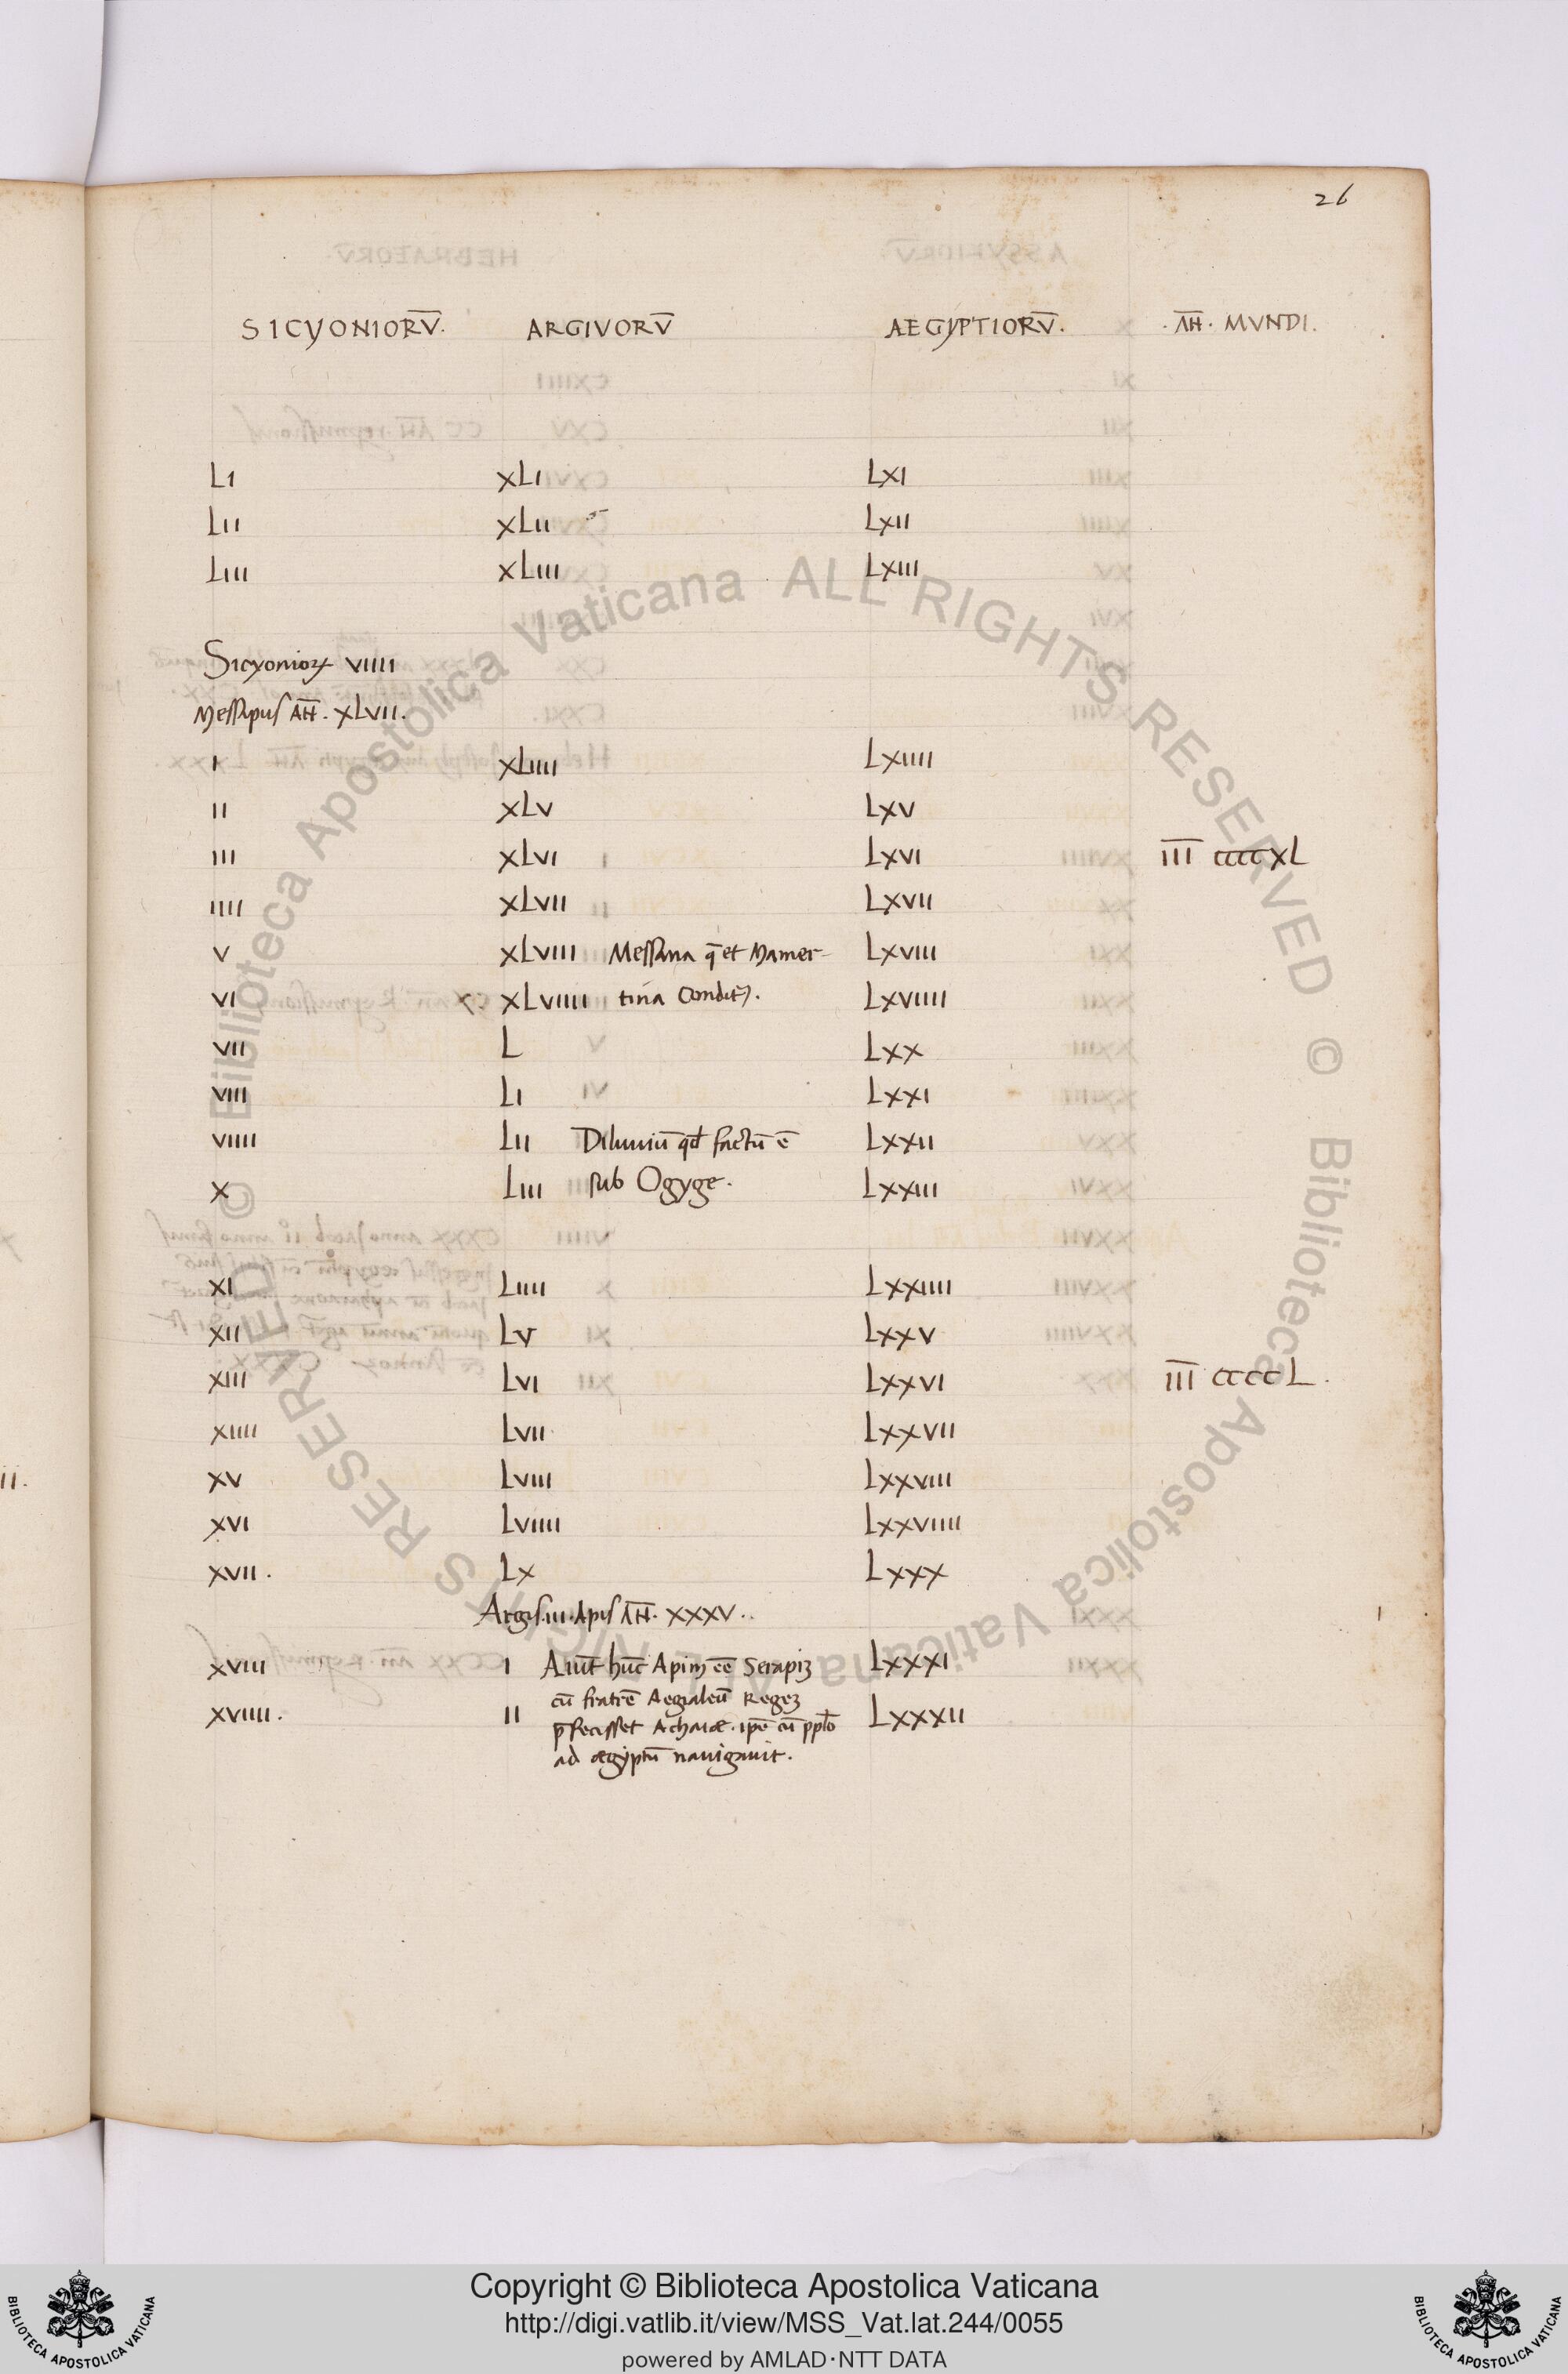 26
SICYONIORV̄. ARGIVORV̄ AEGYPTIORV̄. .AN̄. MVNDI.
LI XLI LXI
LII XLII LXII
LIII XLIII LXIII
Sicyonioꝝ VIIII
Messapus AN̄. XLVII.
I XLIIII LXIIII
II XLV LXV
III XLVI LXVI I̅I̅I̅ CCCCXL
IIII XLVII LXVII
V XLVIII Messana q̄ et Mamer- LXVIII
VI XLVIIII tina LXVIIII
VII L LXX
VIII LI LXXI
VIIII LII Diluuiū qd̄ factū ē LXXII
X LIII sub Ogyge. LXXIII
XI LIIII LXXIIII
XII LV LXXV
XIII LVI LXXVI I̅I̅I̅ CCCCL.
XIIII LVII LXXVII
XV LVIII LXXVIII
XVI LVIIII LXXVIIII
XVII. LX LXXX
Argis.III.Apis AN̄. XXXV.
XVIII I Aiūt hūc Apim eē Serapiꝫ LXXXI
XVIIII. II cū fratrē Aegialeū Regeꝫ LXXXII
p̄fecisset Achaiæ. ipē cū ppl̄o
ad ægyptū nauigauit.
Copyright © Biblioteca Apostolica Vaticana
http://digi.vatlib.it/view/MSS_Vat.lat.244/0055
powered by AMLAD·NTT DATA
BIBLIOTECA APOSTOLICA VATICANA
BIBLIOTECA APOSTOLICA VATICANA
© Biblioteca Apostolica Vaticana ALL RIGHTS RESERVED © Biblioteca Apostolica Vaticana ALL RIGHTS RESERVED